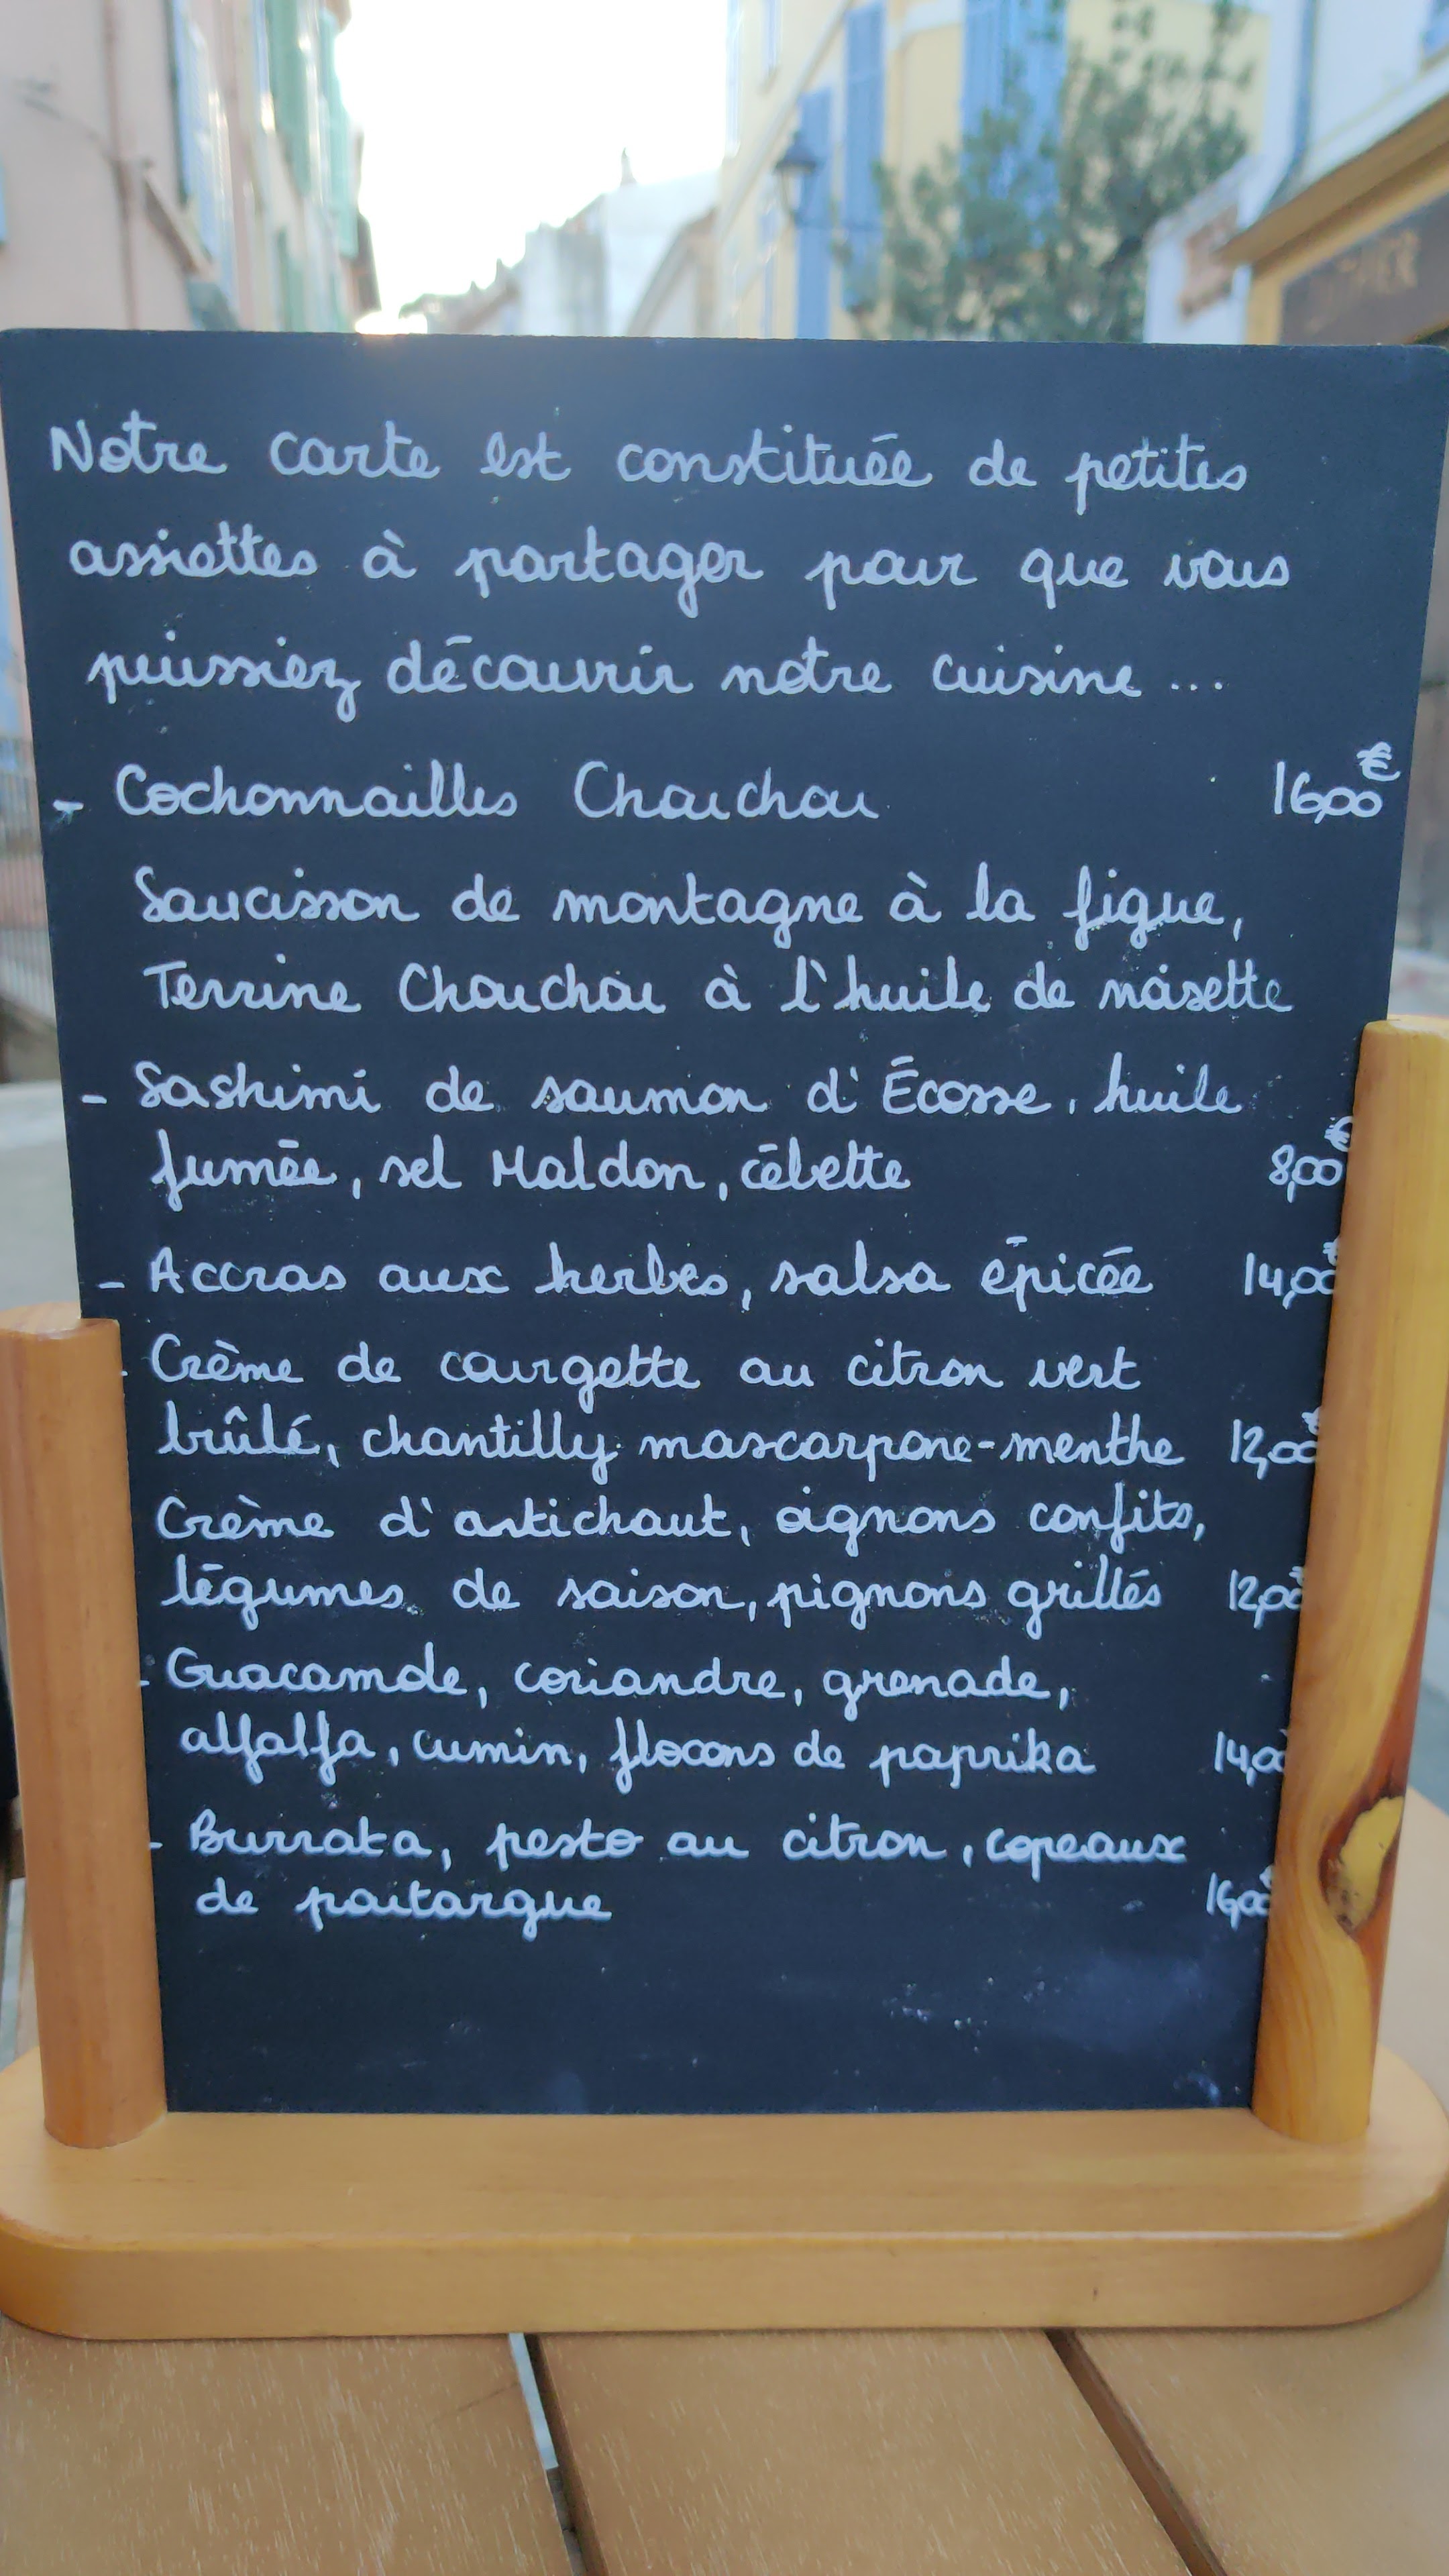 Notre carte est constituée de petites
assiettes à partager pour que vous
puissiez découvrir notre cuisine ...
- Cochonnailles Chouchou 16,00€
Saucisson de montagne à la figue,
Terrine Chouchou à l'huile de noisette
- Sashimi de saumon d'Écosse, huile
fumée, sel Maldon, cébette 8,00€
- Accras aux herbes, salsa épicée 14,00€
- Crème de courgette au citron vert
brûlé, chantilly mascarpone-menthe 12,00€
Crème d'artichaut, oignons confits,
légumes de saison, pignons grillés 12,00€
- Guacamole, coriandre, grenade,
alfalfa, cumin, flocons de paprika 14,00
- Burrata, pesto au citron, copeaux
de poutargue 16,00€